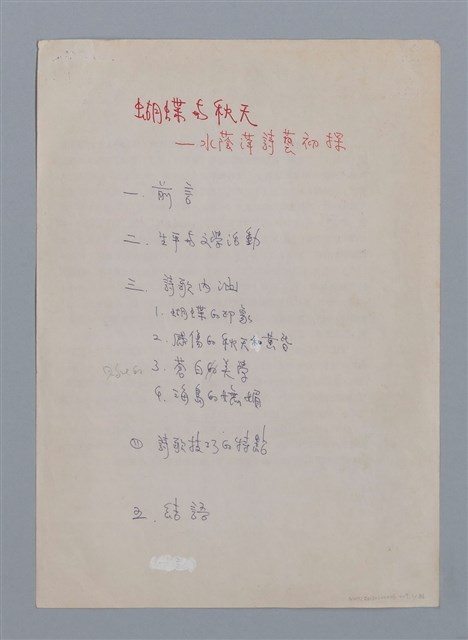 蝴蝶与秋天
—水蔭萍詩藝初探
一. 前言
二. 生平与文学活動
三. 詩歌內涵
1. 蝴蝶的印象
2. 的秋天和黃昏
3. 蒼白的美学
4. 海島的嫵媚
四 詩歌技巧的特點
五. 結語